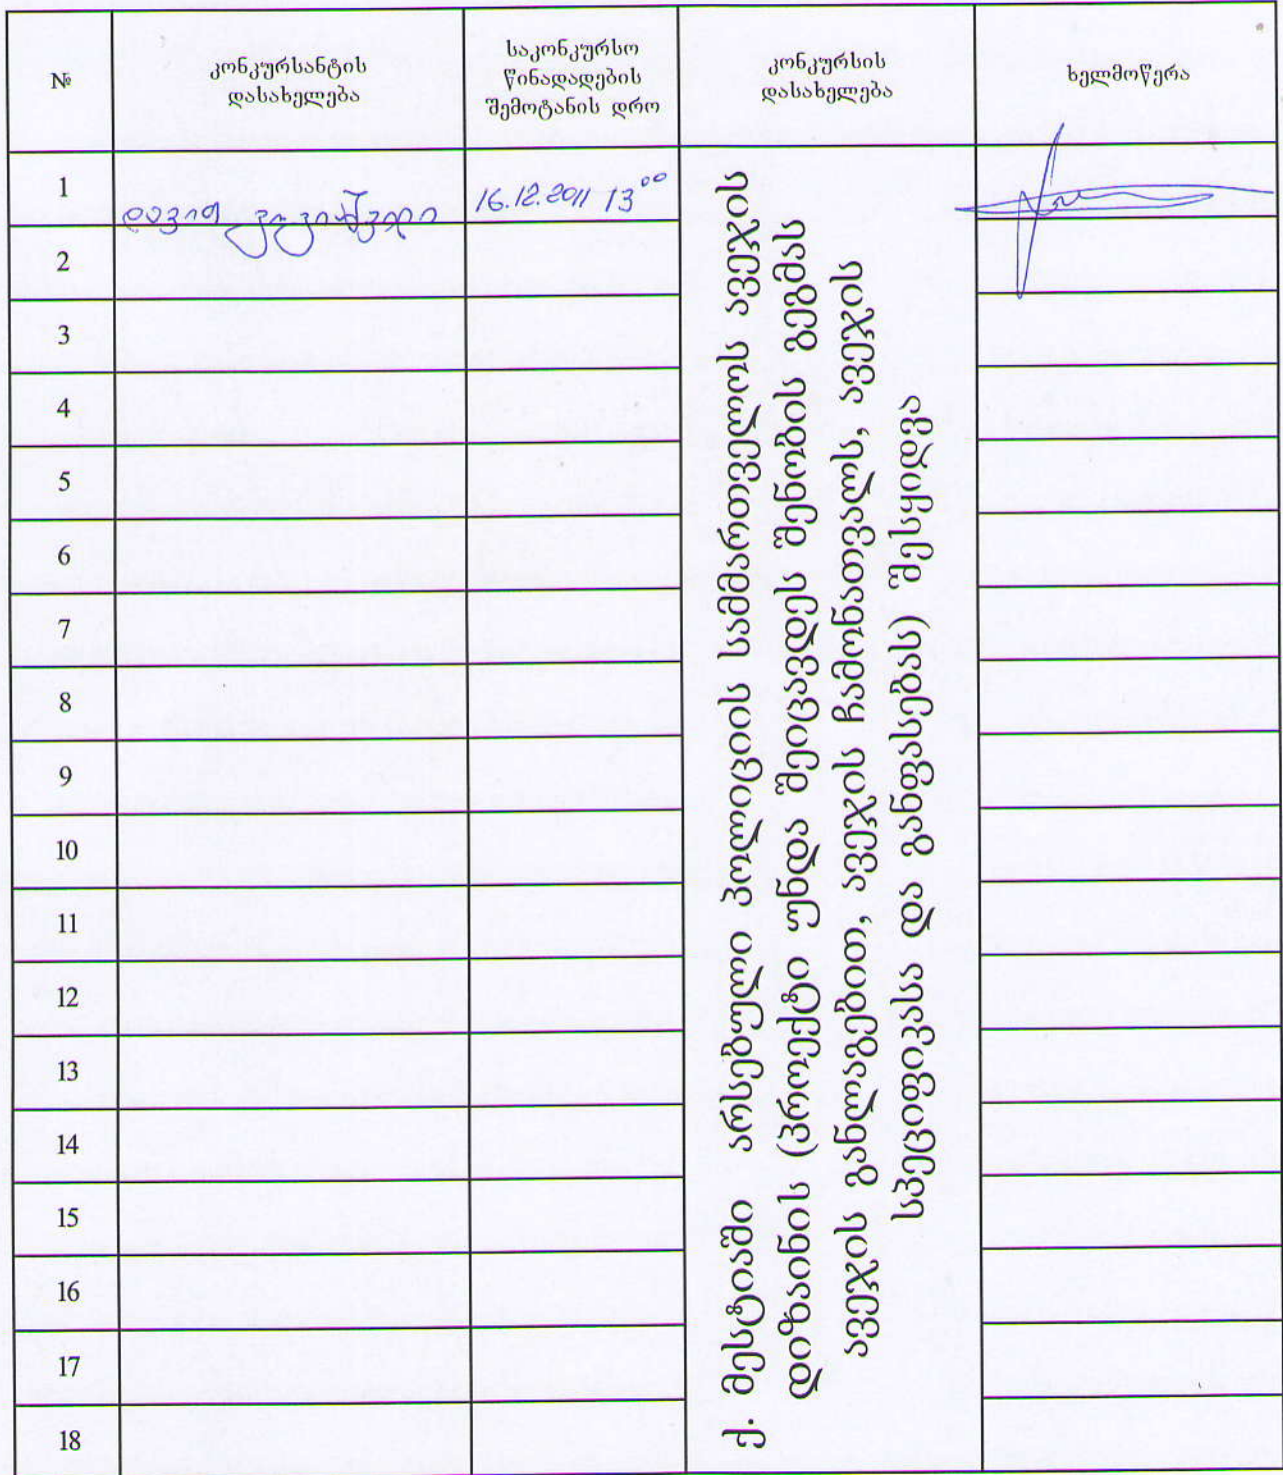 №
კონკურსანტის
დასახელება
საკონკურსო
წინადადების
შემოტანის დრო
კონკურსის
დასახელება
ხელმოწერა
1
დავით
16.12.2011 13⁰⁰
2
3
4
5
6
7
8
9
10
11
12
13
14
15
16
17
18
ქ. მესტიაში არსებული პოლიციის სამმართველოს ავეჯის
დიზაინის (პროექტი უნდა შეიცავდეს შენობის გეგმას
ავეჯის განლაგებით, ავეჯის ჩამონათვალს, ავეჯის
სპეციფიკასა და განფასებას) შესყიდვა